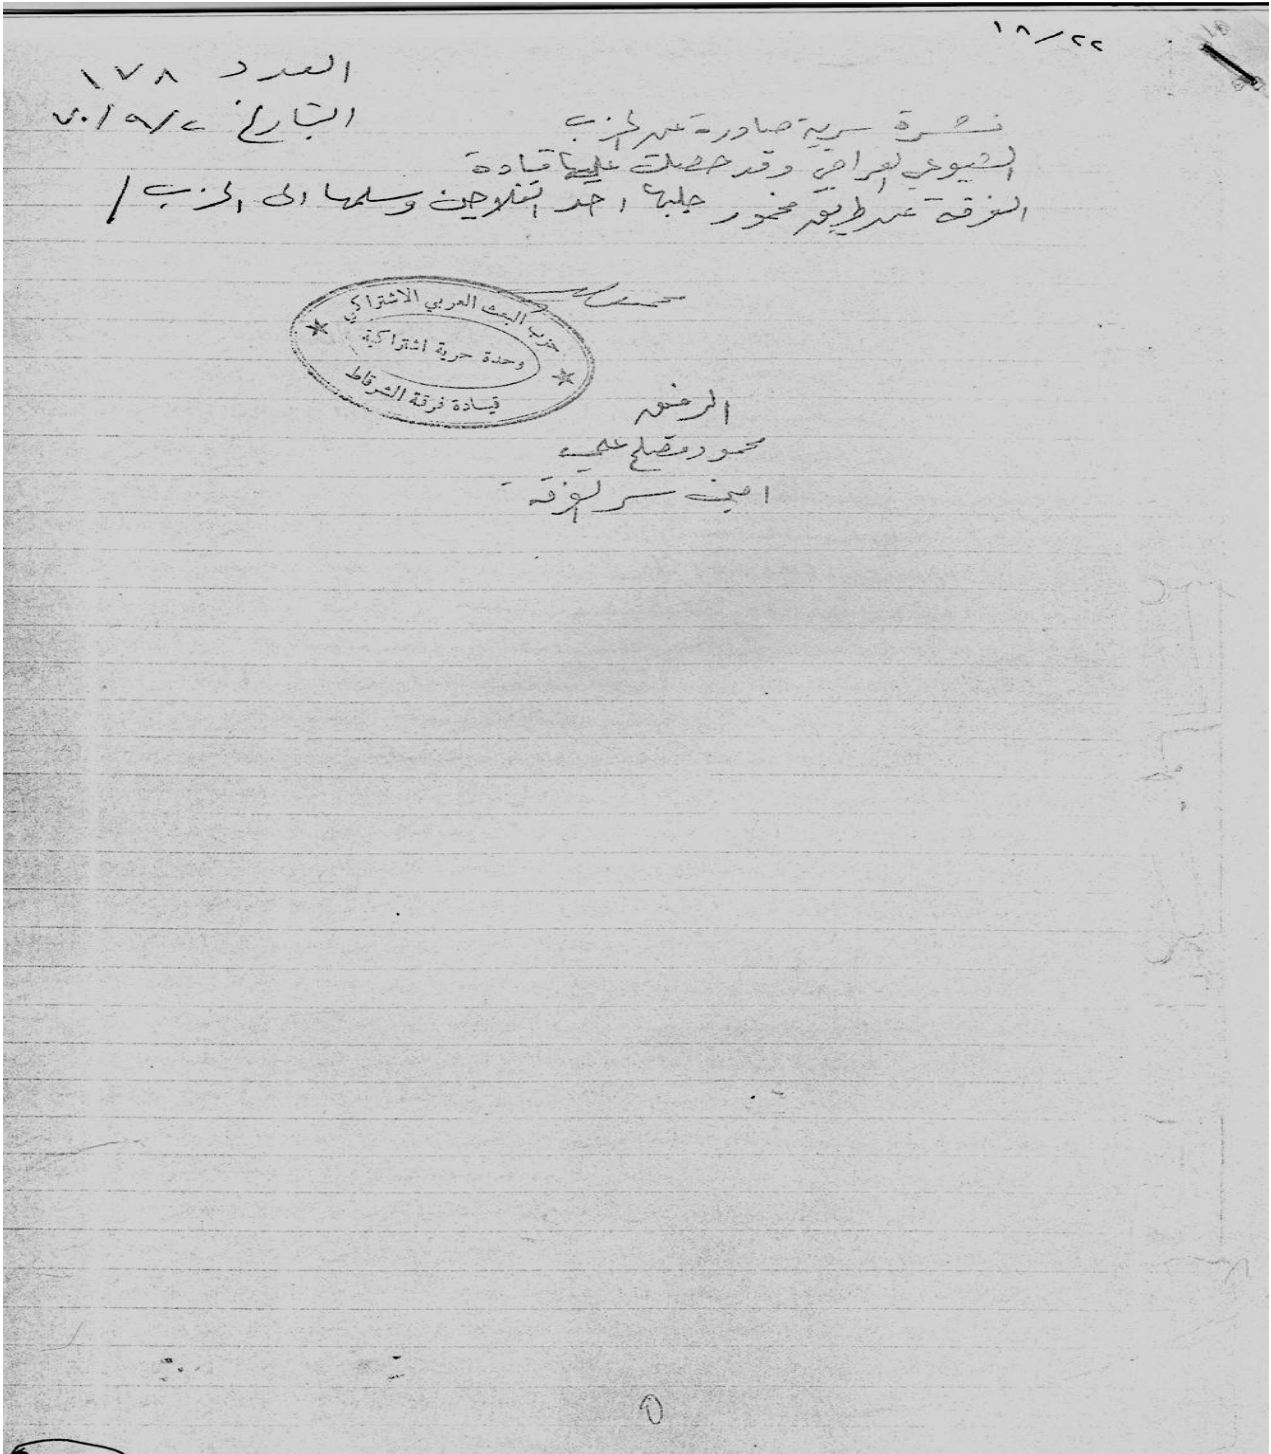 ١٨/٢٢
العدد ١٧٨
التاريخ ٧٠/٩/٢
نشرة سرية صادرة عن الحزب
الشيوعي العراقي وقد حصلت عليها قيادة
الفرقة عن طريق مخمور جلبها احد الفلاحين وسلمها الى الحزب /
حزب البعث العربي الاشتراكي
وحدة حرية اشتراكية
قيادة فرقة الشرقاط
الرفيق
محمود مصلح علي
امين سر الفرقة